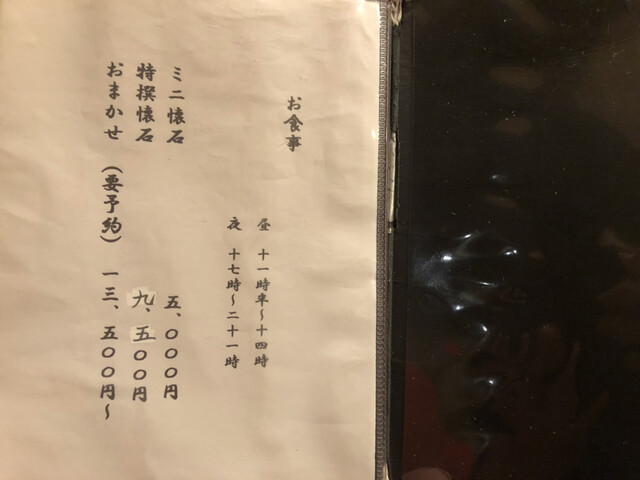 お食事
昼 十一時半〜十四時
夜 十七時〜二十一時
ミニ懐石 五、〇〇〇円
特撰懐石 九、五〇〇円
おまかせ (要予約) 一三、五〇〇円〜